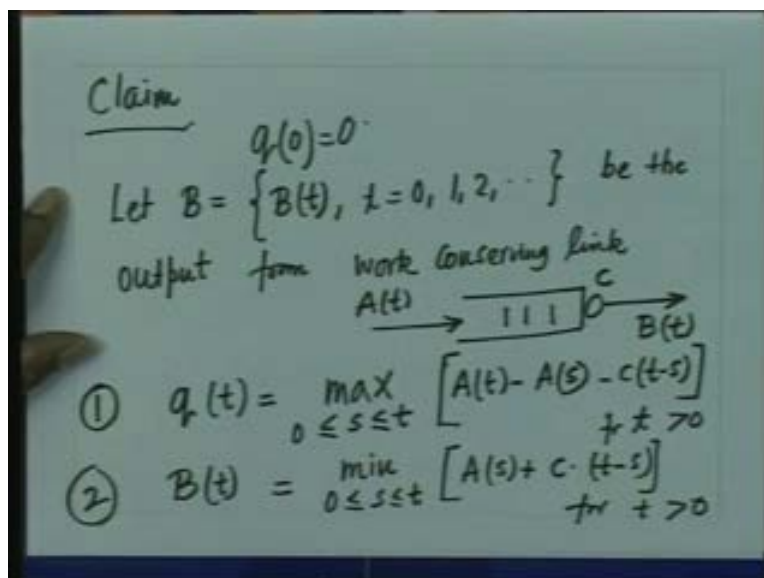 Claim
q(0)=0.
Let B = {B(t), t = 0, 1, 2, ..} be the
output from work conserving link
A(t) C
B(t)
① q(t) = max 0 ≤ s ≤ t [A(t) - A(s) - c(t-s)]
fr t > 0
② B(t) = min 0 ≤ s ≤ t [A(s) + c. (t-s)]
for t > 0